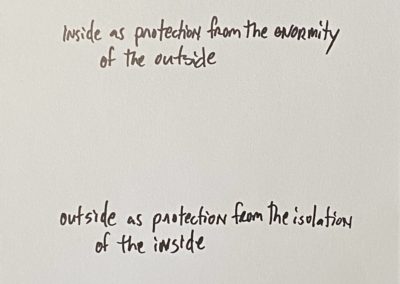 inside as protection from the enormity
of the outside
outside as protection from the isolation
of the inside